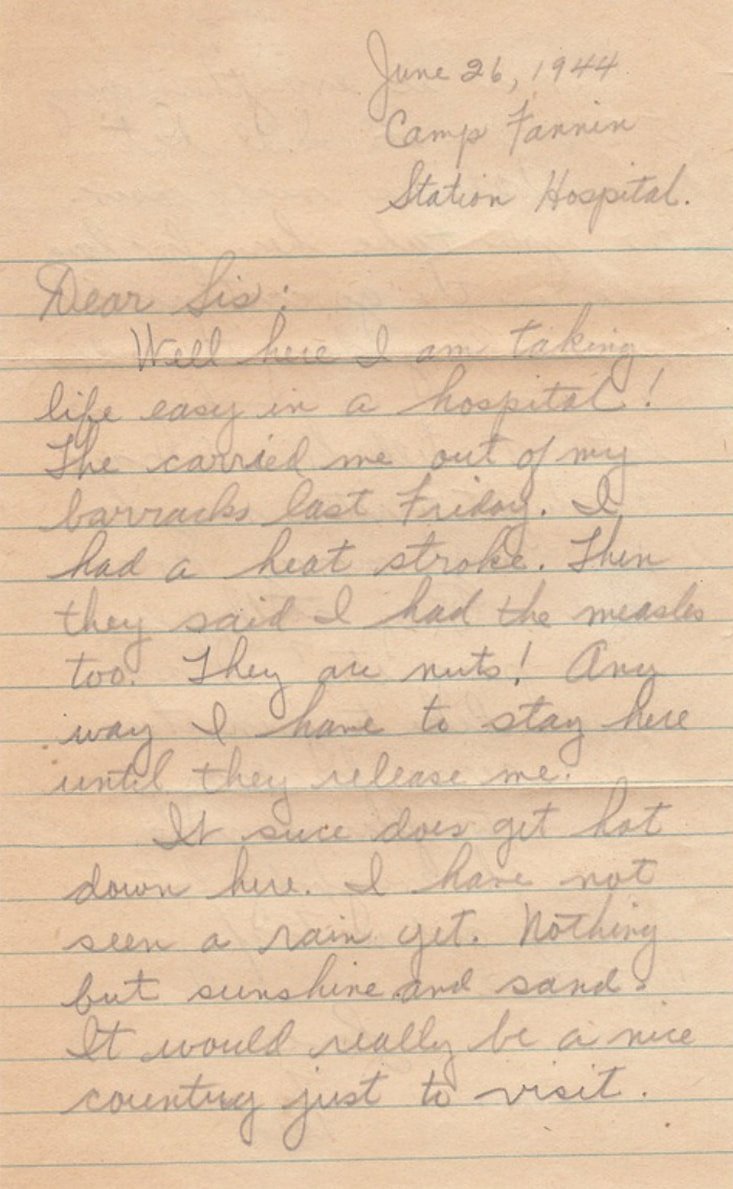 June 26, 1944
Camp Fannin
Station Hospital.
Dear Sis:
Well here I am taking
life easy in a hospital!
The carried me out of my
barracks last Friday. I
had a heat stroke. Then
they said I had the measles
too. They are nuts! Any
way I have to stay here
until they release me.
It sure does get hot
down here. I have not
seen a rain yet. Nothing
but sunshine and sand.
It would really be a nice
country just to visit.